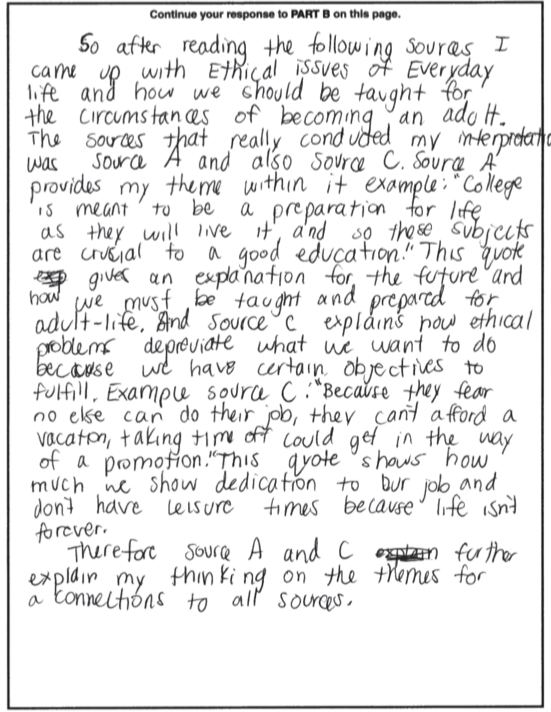 Continue your response to PART B on this page.
So after reading the following sources I
came up with Ethical issues of Everyday
life and how we should be taught for
the circumstances of becoming an adult.
The sources that really conducted my interpretatio
was source A and also source C. Source A
provides my theme within it example: "College
is meant to be a preparation for life
as they will live it, and so these subjects
are crusial to a good education." This quote
gives an explanation for the future and
how we must be taught and prepared for
adult-life. And source C explains how ethical
problems depreviate what we want to do
because we have certain objectives to
fulfill. Example source C: "Because they fear
no else can do their job, they can't afford a
vacaton, taking time off could get in the way
of a promotion." This quote shows how
much we show dedication to our job and
don't have leisure times because life isn't
forever.
Therefore source A and C further
explain my thinking on the themes for
a connections to all sources.